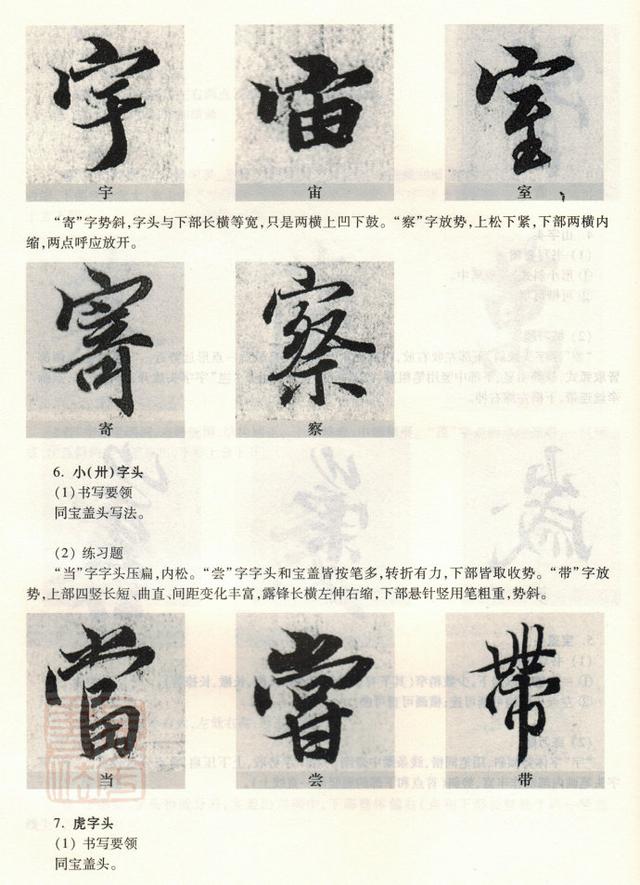 宇 宙 室
宇 宙 室
“寄”字势斜,字头与下部长横等宽,只是两横上凹下鼓。“察”字放势,上松下紧,下部两横内
缩,两点呼应放开。
寄 察
寄 察
6. 小(卅)字头
(1)书写要领
同宝盖头写法。
(2) 练习题
“当”字字头压扁,内松。“尝”字字头和宝盖皆按笔多,转折有力,下部皆取收势。“带”字放
势,上部四竖长短、曲直、间距变化丰富,露锋长横左伸右缩,下部悬针竖用笔粗重,势斜。
當 嘗 帶
当 尝 带
7. 虎字头
(1) 书写要领
同宝盖头。